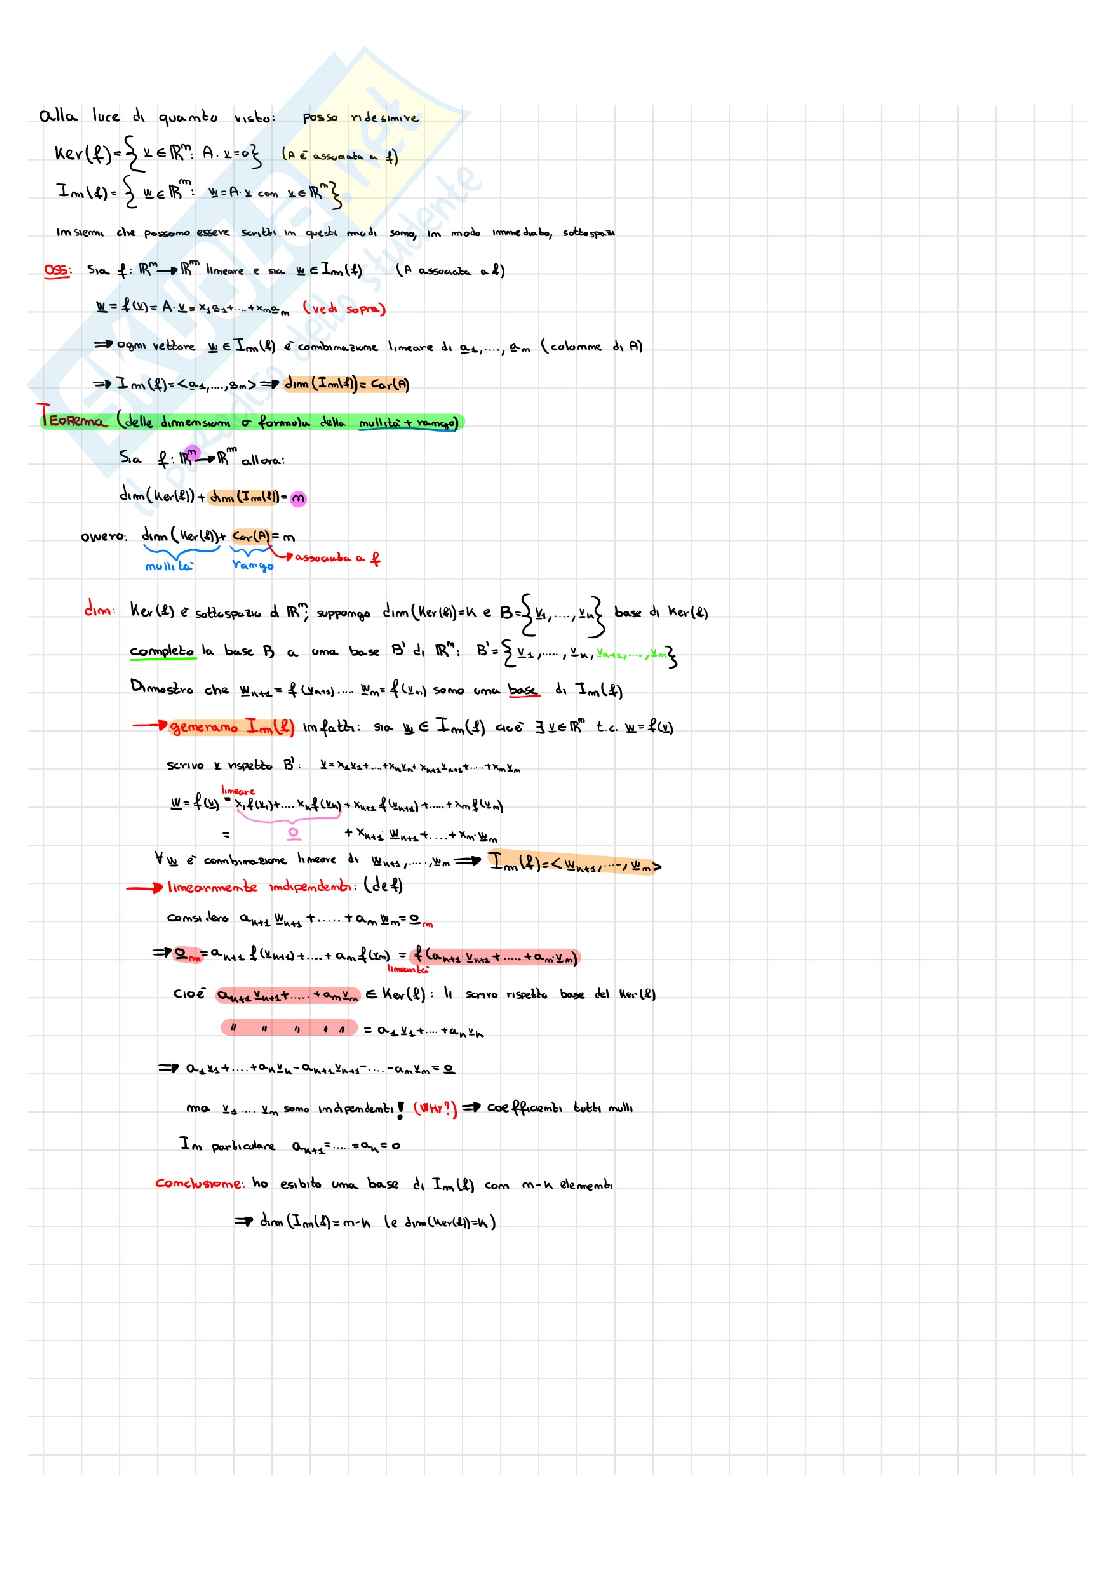 alla luce di quanto visto: posso ridefinire
Ker(f) = { v ∈ ℝⁿ: A · v = 0 } (A è associata a f)
Im(f) = { w ∈ ℝᵐ: w = A · v con v ∈ ℝⁿ }
Insiemi che possono essere scritti in questi modi sono, in modo immediato, sottospazi
OSS: Sia f: ℝⁿ → ℝᵐ lineare e sia w ∈ Im(f) (A associata a f)
w = f(v) = A · v = x₁a₁ + ... + xₙaₙ (vedi sopra)
⇒ ogni vettore w ∈ Im(f) è combinazione lineare di a₁, ...., aₙ (colonne di A)
⇒ Im(f) = <a₁, ...., aₙ> ⇒ dim(Im(f)) = car(A)
TEOREMA (delle dimensioni o formula della nullità + rango)
Sia f: ℝⁿ → ℝᵐ allora:
dim(Ker(f)) + dim(Im(f)) = n
ovvero: dim(Ker(f)) + car(A) = n
nullità rango → associata a f
dim: Ker(f) è sottospazio di ℝⁿ; suppongo dim(Ker(f)) = k e B = { v₁, ...., vₖ } base di Ker(f)
completo la base B a una base B' di ℝⁿ: B' = { v₁, ....., vₖ, vₖ₊₁, ..., vₙ }
Dimostro che wₖ₊₁ = f(vₖ₊₁) .... wₙ = f(vₙ) sono una base di Im(f)
→ generano Im(f) infatti: sia w ∈ Im(f) cioè ∃ v ∈ ℝⁿ t.c. w = f(v)
scrivo v rispetto B': v = x₁v₁ + ... + xₖvₖ + xₖ₊₁vₖ₊₁ + .... + xₙvₙ
lineare
w = f(v) = x₁f(v₁) + .... xₖf(vₖ) + xₖ₊₁f(vₖ₊₁) + ..... + xₙf(vₙ)
= 0 + xₖ₊₁ · wₖ₊₁ + .... + xₙ · wₙ
∀ w è combinazione lineare di wₖ₊₁, ....., wₙ ⇒ Im(f) = <wₖ₊₁, ..., wₙ>
→ linearmente indipendenti: (def)
considero aₖ₊₁ wₖ₊₁ + ..... + aₙ wₙ = 0ₘ
⇒ 0ₘ = aₖ₊₁ f(vₖ₊₁) + .... + aₙ f(vₙ) = f(aₖ₊₁ vₖ₊₁ + ..... + aₙ vₙ)
linearità
cioè aₖ₊₁ vₖ₊₁ + ..... + aₙ vₙ ∈ Ker(f): li scrivo rispetto base del Ker(f)
" " " " " = a₁ v₁ + .... + aₖ vₖ
⇒ a₁v₁ + .... + aₖvₖ - aₖ₊₁vₖ₊₁ - .... - aₙvₙ = 0
ma v₁ ... vₙ sono indipendenti! (WHY?) ⇒ coefficienti tutti nulli
In particolare aₖ₊₁ = .... = aₙ = 0
Conclusione: ho esibito una base di Im(f) con n-k elementi
⇒ dim(Im(f) = n-k (e dim(Ker(f)) = k)